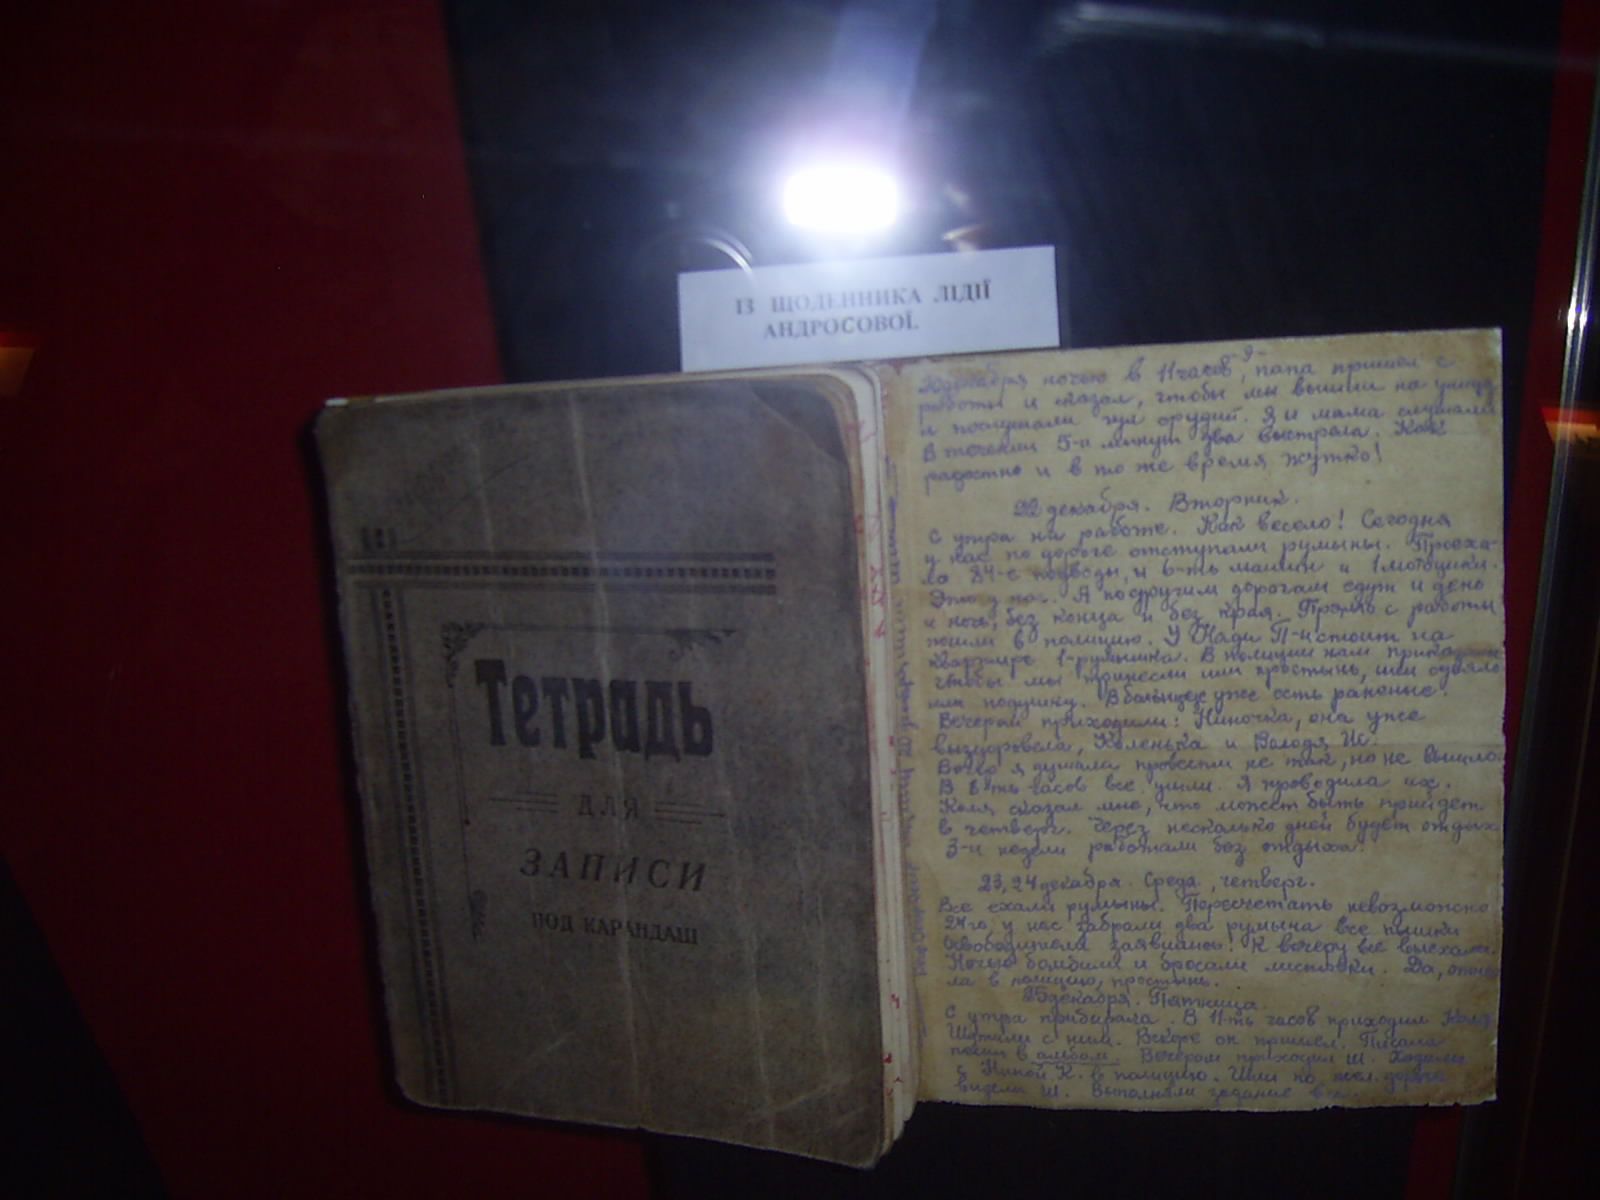 ІЗ ЩОДЕННИКА ЛІДІЇ
АНДРОСОВОЇ.
Тетрадь
ДЛЯ
ЗАПИСИ
ПОД КАРАНДАШ
-9-
20 декабря ночью в 11 часов, папа пришел с
работы и сказал, чтобы мы вышли на улицу
и послушали гул орудий. Я и мама слушали
В течении 5-и минут два выстрела. Как
радостно и в то же время жутко!
22 декабря. Вторник.
С утра на работе. Как весело! Сегодня
у нас по дороге отступали румыны. Проеха-
ло 84-е подводы, и 6-ть машин и 1 мотоцикл.
Это у нас. А по другим дорогам едут и день
и ночь, без конца и без края. Прямо с работы
пошли в полицию. У Нади П-и стоит на
квартире 1-румынка. В полиции нам приказали
чтобы мы принесли или простынь, или одеяло
или подушку. В больнице уже есть раненые.
Вечером приходили: Ниночка, она уже
выздоровела, Коленька и Володя Ж.
Вечер я думала провести не так, но не вышло.
В 8 часов все ушли. Я проводила их.
Коля сказал мне, что может быть прийдет
в четверг. Через несколько дней будет отдых
3-и недели работали без отдыха.
23, 24 декабря. Среда, четверг.
Все ехали румыны. Пересчетать невозможно
24го у нас забрали два румына все пышки
Освободители заявились! К вечеру все выехали.
Ночью бомбили и бросали листовки. Да, отнес-
ла в полицию, простынь.
25 декабря. Пятница.
С утра прибирала. В 11-ть часов приходил Коля
Шутили с ним. Вскоре он пришел. Писала
песни в альбом. Вечером приходил Ш. Ходили
с Ниной К. в полицию. Шли по жел. дороге
видели Ш. Выполняли задание